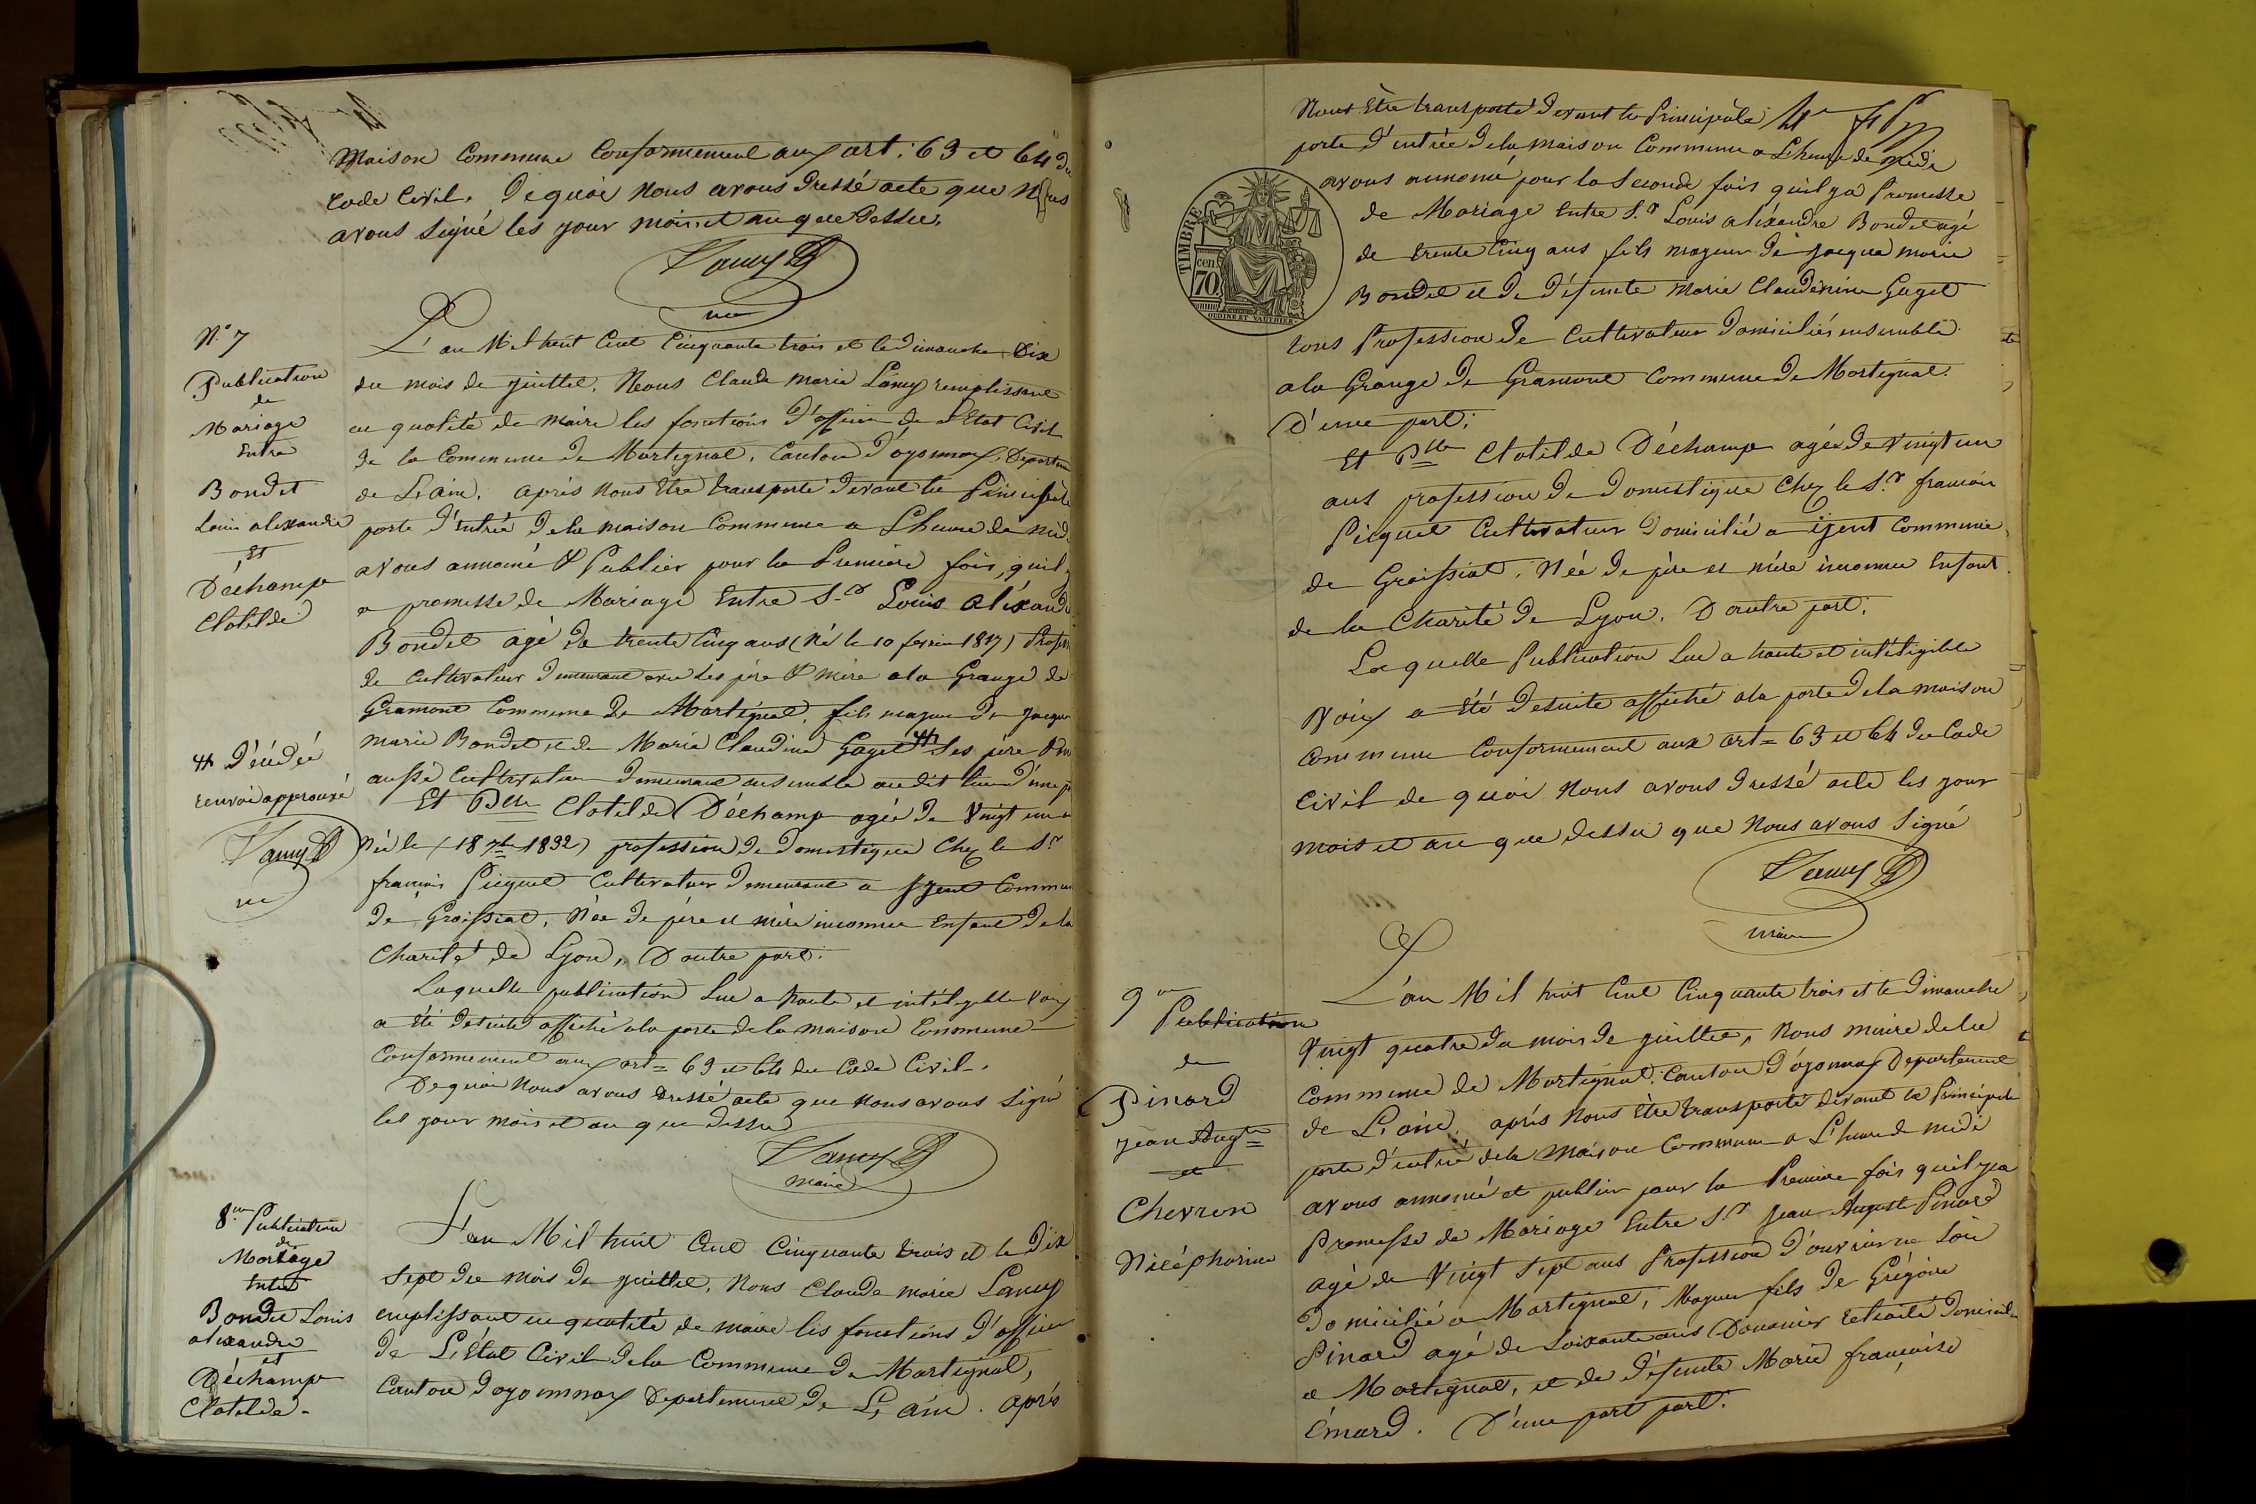 Maison Commune Conformement aux art. 63 et 64 du
Code Civil. De quoi Nous avons dressé acte que Nous
avons signé les jour mois et an que dessus.
Lamy
N° 7
Publication
de
Mariage
Entre
Bondet
Louis alexandre
Et
Déchamp
Clotilde
L'an Mil huit Cent Cinquante trois et le dimanche Dix
du mois de juillet. Nous Claude Marie Lamy remplissant
en qualité de Maire les fonctions d'officier de L'Etat Civil
de la Commune de Martignat, Canton d'oyonnax, Departem
de L'ain. après Nous Etre transporté devant la Principale
porte d'Entrée de la maison Commune a L'heure de mid
avons annoncé & Publier pour la Premiere fois, quil y
a promesse de Mariage Entre S.r Louis Aléxand
Bondet agé de trente Cinq ans (Né le 10 fevrier 1817) Profess
de Cultivateur demeurant avec ses père & mère a la Grange de
Gramont Commune de Martignat, fils majeur de Jacque
Marie Bondet et de Marie Claudine Gaget # ses père &
aussi Cultivateur demeurant ensemble audit lieu d'une p
# Décédée
renvoi approuvé
Lamy
Et Dlle Clotilde Déchamp agée de Vingt un a
Née le (18 7bre 1832) profession de Domestique Chez le S.r
françois Picquet Cultivateur demeurant a Ijent Commun
de Groissiat, Née de père et mère inconnue Enfant de la
Charité de Lyon, D'autre part.
Laquelle publication Lue a haute et intéligible Voix
a été desuite affiché a la porte de la maison Commune
Conformement aux art = 63 et 64 du Code Civil.
De quoi Nous avons dressé acte que Nous avons Signé
les jour mois et an que dessus
Lamy
maire
8.me Publication
de
Mariage
Entre
Bondet Louis
alexandre
et
Déchamp
Clotilde.
L'an Mil huit Cent Cinquante trois et le Dix
Sept du mois de juillet, Nous Claude Marie Lamy
remplissant en qualité de maire les fonctions d'officier
de L'Etat Civil de la Commune de Martignat,
Canton d'oyonnax Departement de L'ain. après
Nous Etre transporté devant la Principale
porte d'entrée de la maison Commune a L'heure de midi
avons annoncé pour la Seconde fois quil ya Promesse
de Mariage Entre S.r Louis aléxandre Bondet agé
de trente Cinq ans fils majeur de Jacque Marie
Bondet et de Défunte Marie Claudinine Gaget
tous Profession de Cultivateur domiciliés ensemble
a la Grange de Gramont Commune de Martignat.
D'une part;
TIMBRE
cen
70
OUDINE ET VAUTHIER
Et Dlle Clotilde Déchamp agée de Vingt un
ans profession de Domestique Chez le S.r francois
Picquet Cultivateur domicilié a ijent Commune
de Groissiat, Née de père et mère inconnue Enfant
de la Charité de Lyon. D'autre part.
Laquelle Publication Lue a haute et intéligible
Voix a été desuite affiché a la porte de la maison
Commune Conformement aux art = 63 et 64 du Code
Civil de quoi Nous avons dressé acte les jour
mois et an que dessus que Nous avons Signé
Lamy
maire
9.me
Publication
de
Pinard
Jean Augte
et
Chevron
Nicéphorine
L'an Mil huit Cent Cinquante trois et le Dimanche
Vingt quatre du mois de juillet, Nous maire de la
Commune de Martignat, Canton d'oyonnax Departement
de L'ain, après Nous Etre transporté devant la Principale
porte d'entrée de la Maison Commune a L'heure de midi
avons annoncé et publier pour la Premiere fois quil ya
Promesse de Mariage Entre S.r Jean Auguste Pinard
agé de Vingt Sept ans Profession d'ouvrier en Soie
domicilié a Martignat, Majeur fils de Grégoire
Pinard agé de Soixante ans Douanier retraité domicil
a Martignat, et de défunte Marie françoise
Emard. D'une part part.